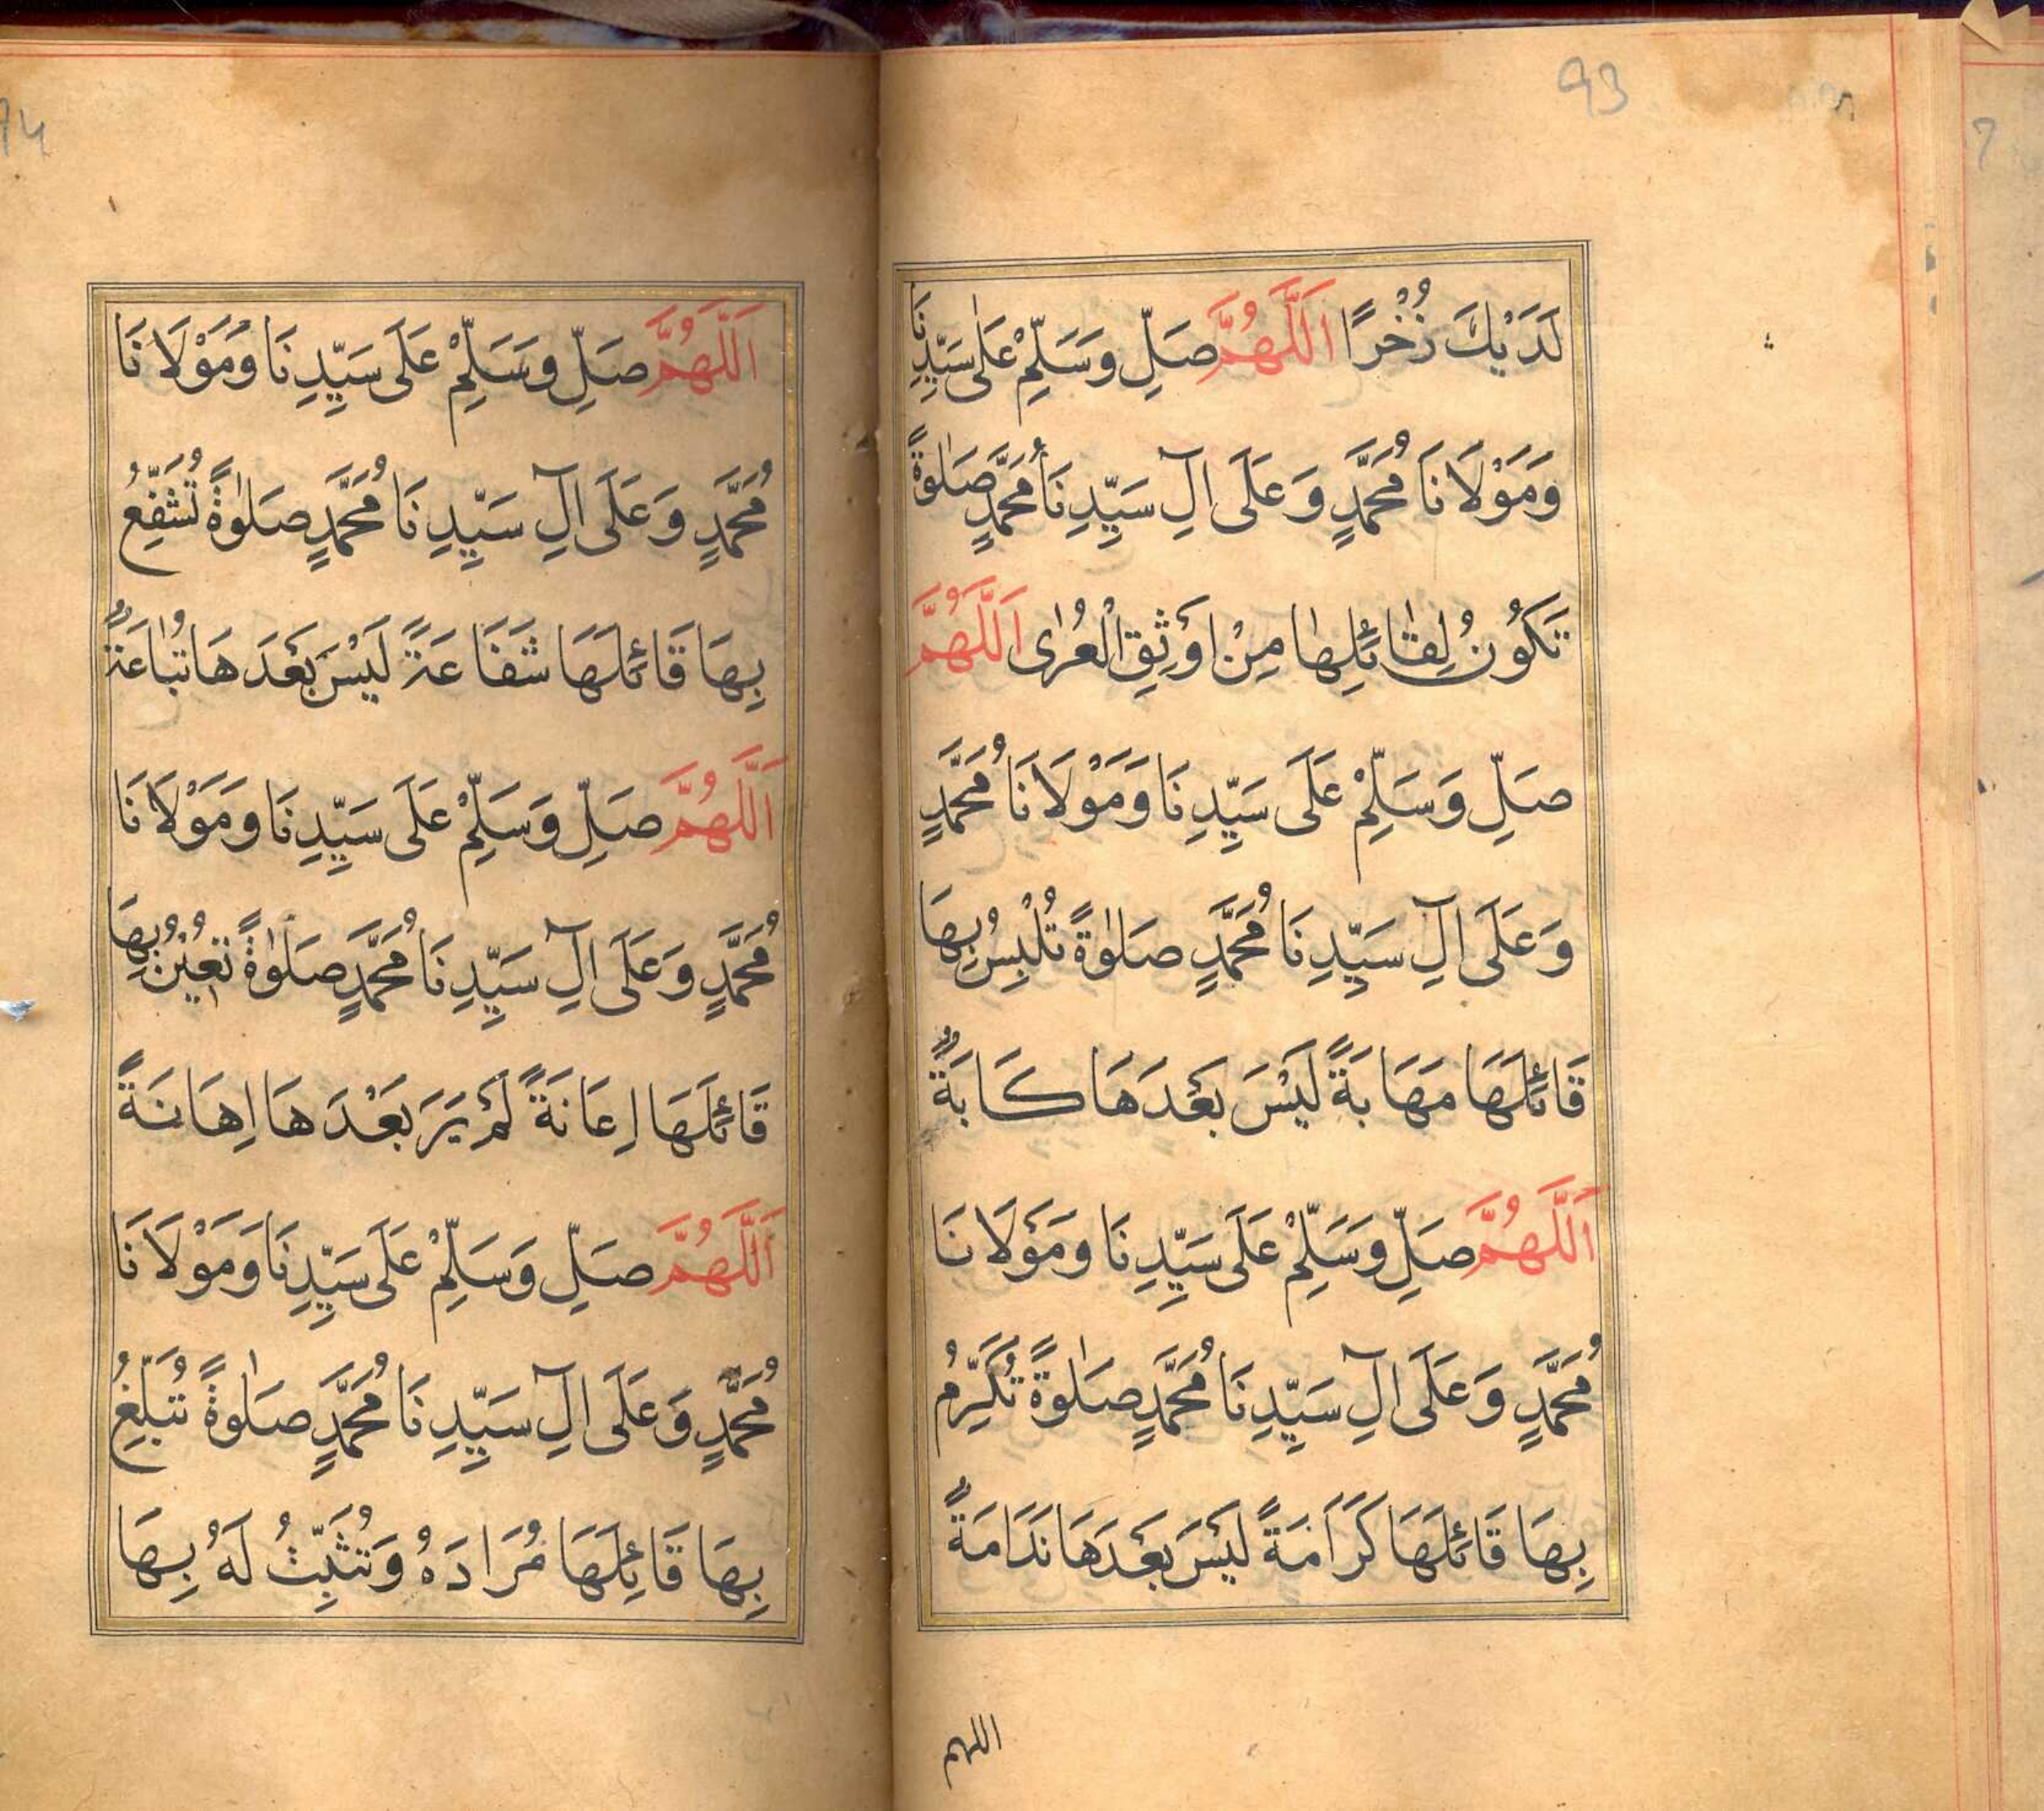 93
لَدَيْكَ ذُخْرًا اَللّٰهُمَّ صَلِّ وَسَلِّمْ عَلٰى سَيِّدِنَا
وَمَوْلَانَا مُحَمَّدٍ وَعَلَى اٰلِ سَيِّدِنَا مُحَمَّدٍ صَلٰوةً
تَكُوْنُ لِقَائِلِهَا مِنْ اَوْثِقِ الْعُرٰى اَللّٰهُمَّ
صَلِّ وَسَلِّمْ عَلَى سَيِّدِنَا وَمَوْلَانَا مُحَمَّدٍ
وَعَلَى اٰلِ سَيِّدِنَا مُحَمَّدٍ صَلٰوةً تُلْبِسُ بِهَا
قَائِلَهَا مَهَابَةً لَيْسَ بَعْدَهَا كَابَةٌ
اَللّٰهُمَّ صَلِّ وَسَلِّمْ عَلَى سَيِّدِنَا وَمَوْلَانَا
مُحَمَّدٍ وَعَلَى اٰلِ سَيِّدِنَا مُحَمَّدٍ صَلٰوةً تُكَرِّمُ
بِهَا قَائِلَهَا كَرَامَةً لَيْسَ بَعْدَهَا نَدَامَةٌ
اللهم
اَللّٰهُمَّ صَلِّ وَسَلِّمْ عَلَى سَيِّدِنَا وَمَوْلَانَا
مُحَمَّدٍ وَعَلَى اٰلِ سَيِّدِنَا مُحَمَّدٍ صَلٰوةً تُشَفِّعُ
بِهَا قَائِلَهَا شَفَاعَةً لَيْسَ بَعْدَهَا تُبَاعَةٌ
اَللّٰهُمَّ صَلِّ وَسَلِّمْ عَلَى سَيِّدِنَا وَمَوْلَانَا
مُحَمَّدٍ وَعَلَى اٰلِ سَيِّدِنَا مُحَمَّدٍ صَلٰوةً تُعِيْنُ بِهَا
قَائِلَهَا اِعَانَةً لَمْ يَرَ بَعْدَهَا اِهَانَةً
اَللّٰهُمَّ صَلِّ وَسَلِّمْ عَلَى سَيِّدِنَا وَمَوْلَانَا
مُحَمَّدٍ وَعَلَى اٰلِ سَيِّدِنَا مُحَمَّدٍ صَلٰوةً تُبَلِّغُ
بِهَا قَائِلَهَا مُرَادَهُ وَتُثَبِّتُ لَهُ بِهَا